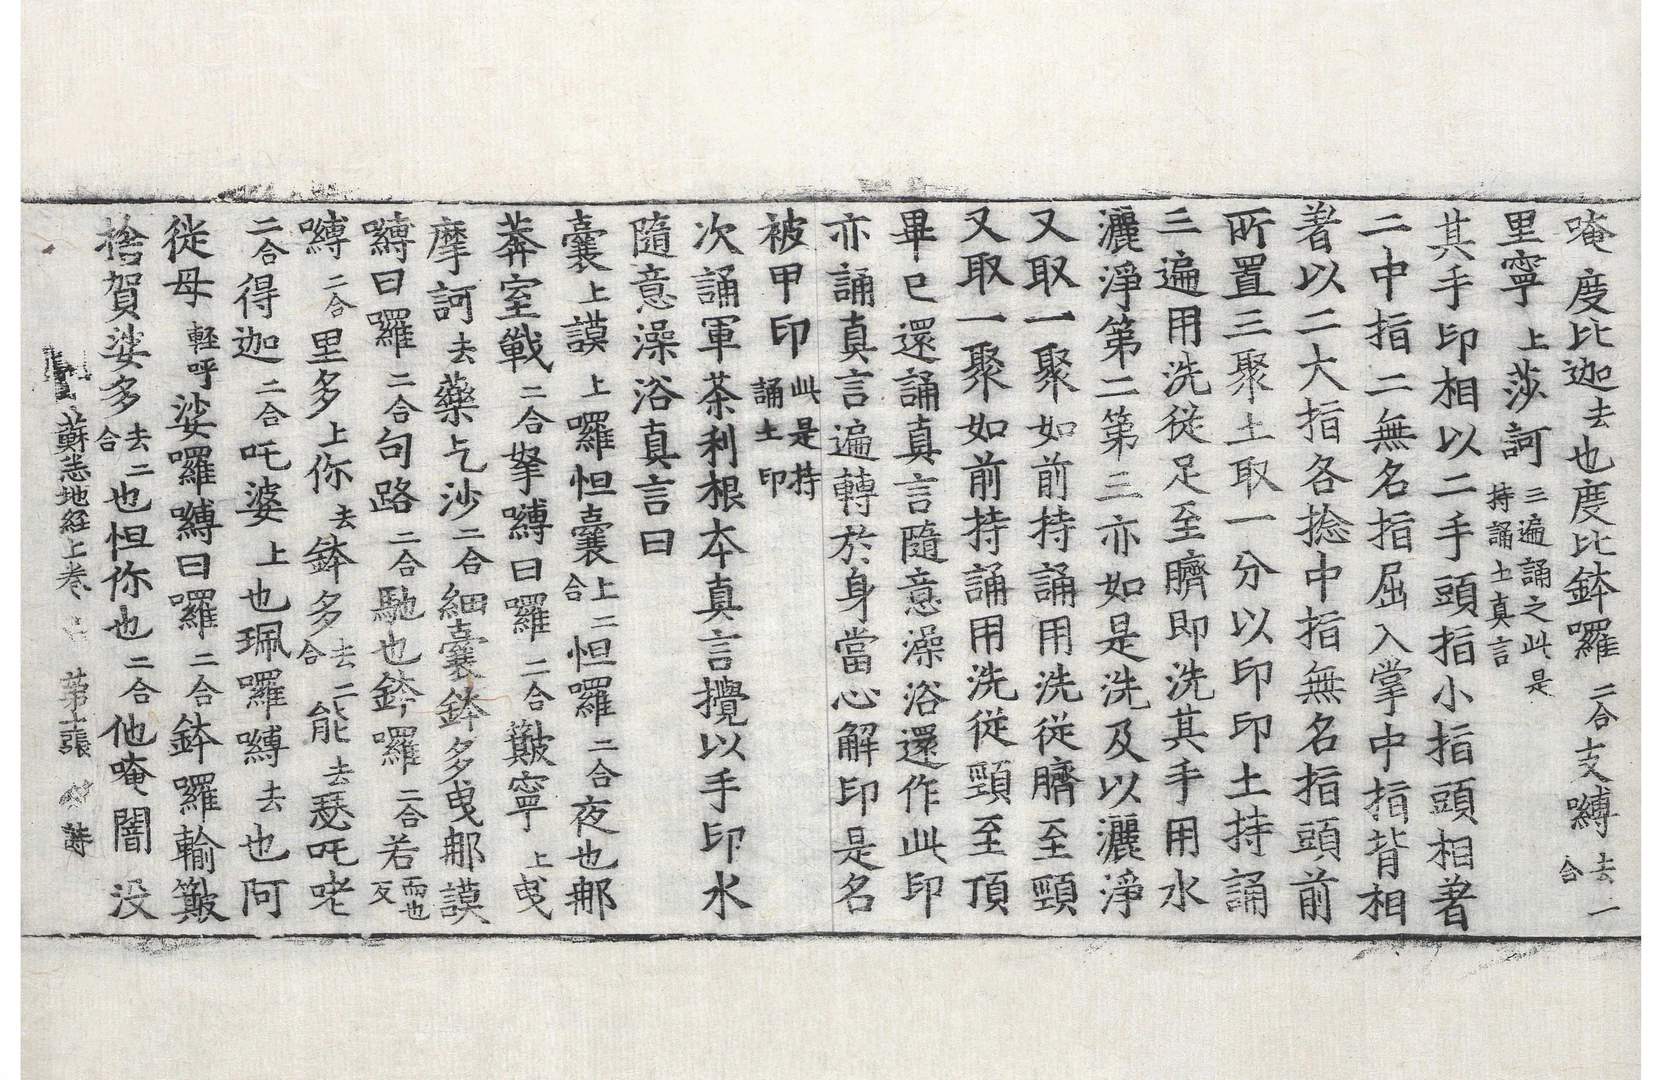 唵度比迦去也度比鉢囉二合支嚩去二合
里寧上莎訶三遍誦之此是持誦土真言
其手印相以二手頭指小指頭相著
二中指二無名指屈入掌中指背相
著以二大指各捻中指無名指頭前
所置三聚土取一分以印印土持誦
三遍用洗從足至臍即洗其手用水
灑淨第二第三亦如是洗及以灑淨
又取一聚如前持誦用洗從臍至頸
又取一聚如前持誦用洗從頸至頂
畢已還誦真言隨意澡浴還作此印
亦誦真言遍轉於身當心解印是名
被甲印此是持誦土印
次誦軍茶利根本真言攪以手印水
隨意澡浴真言曰
囊上謨上囉怛囊上二合怛囉二合夜也那
莽室戰二合拏嚩曰囉二合簸寧上曳
摩訶去藥乞沙二合細囊鉢多曳那謨
嚩曰囉二合句路二合馱也鉢囉二合若而也反
嚩二合里多上你去鉢多去二合能去瑟吒咾
二合得迦二合吒婆上也珮囉嚩去也阿
徙母輕呼娑囉嚩曰囉二合鉢囉輸簸
捨賀娑多去二合也怛你也二合他唵闇没
蘇悉地經上卷 第 張 詩